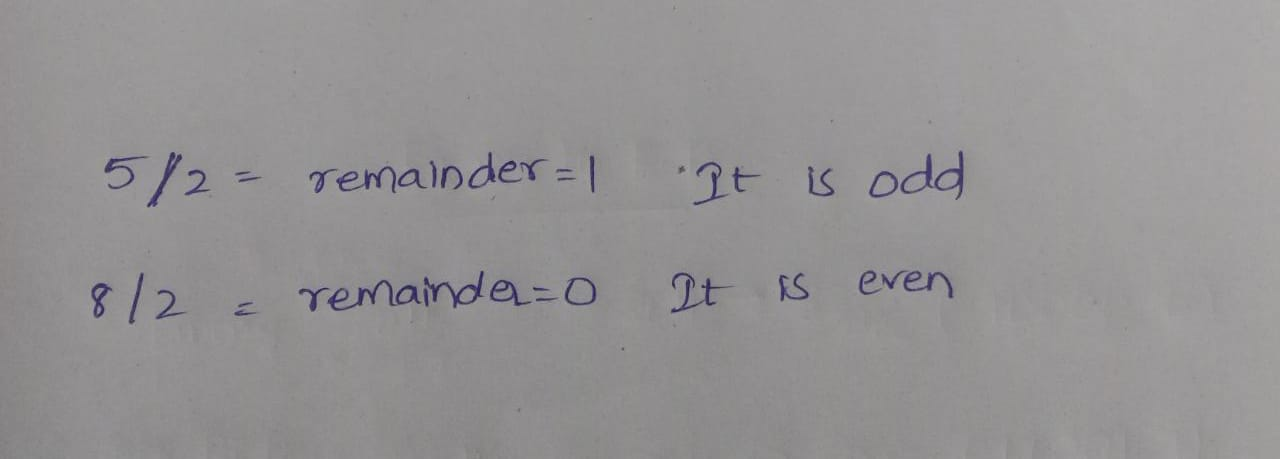 5/2 = remainder = 1 It is odd
8/2 = remainder = 0 It is even